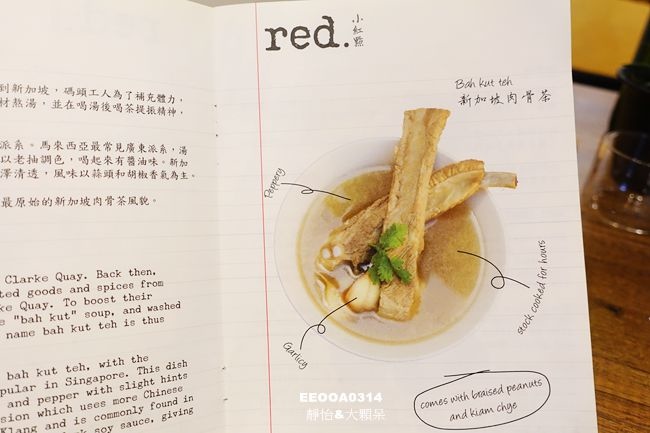 到新加坡，碼頭工人為了補充體力，
材熬湯，並在喝湯後喝茶提振精神，
派系。馬來西亞最常見廣東派系，湯
以老抽調色，喝起來有醬油味。新加
澤清透，風味以蒜頭和胡椒香氣為主。
最原始的新加坡肉骨茶風貌。
Clarke Quay. Back then,
ted goods and spices from
ke Quay. To boost their
e "bah kut" soup, and washed
name bah kut teh is thus
bah kut teh, with the
pular in Singapore. This dish
and pepper with slight hints
sion which uses more Chinese
Klang and is commonly found in
k soy sauce, giving
red.
小紅點
Bah kut teh
新加坡肉骨茶
Peppery
stock cooked for hours
Garlicy
comes with braised peanuts
and kiam chye
EEOOA0314
靜怡&大顆呆